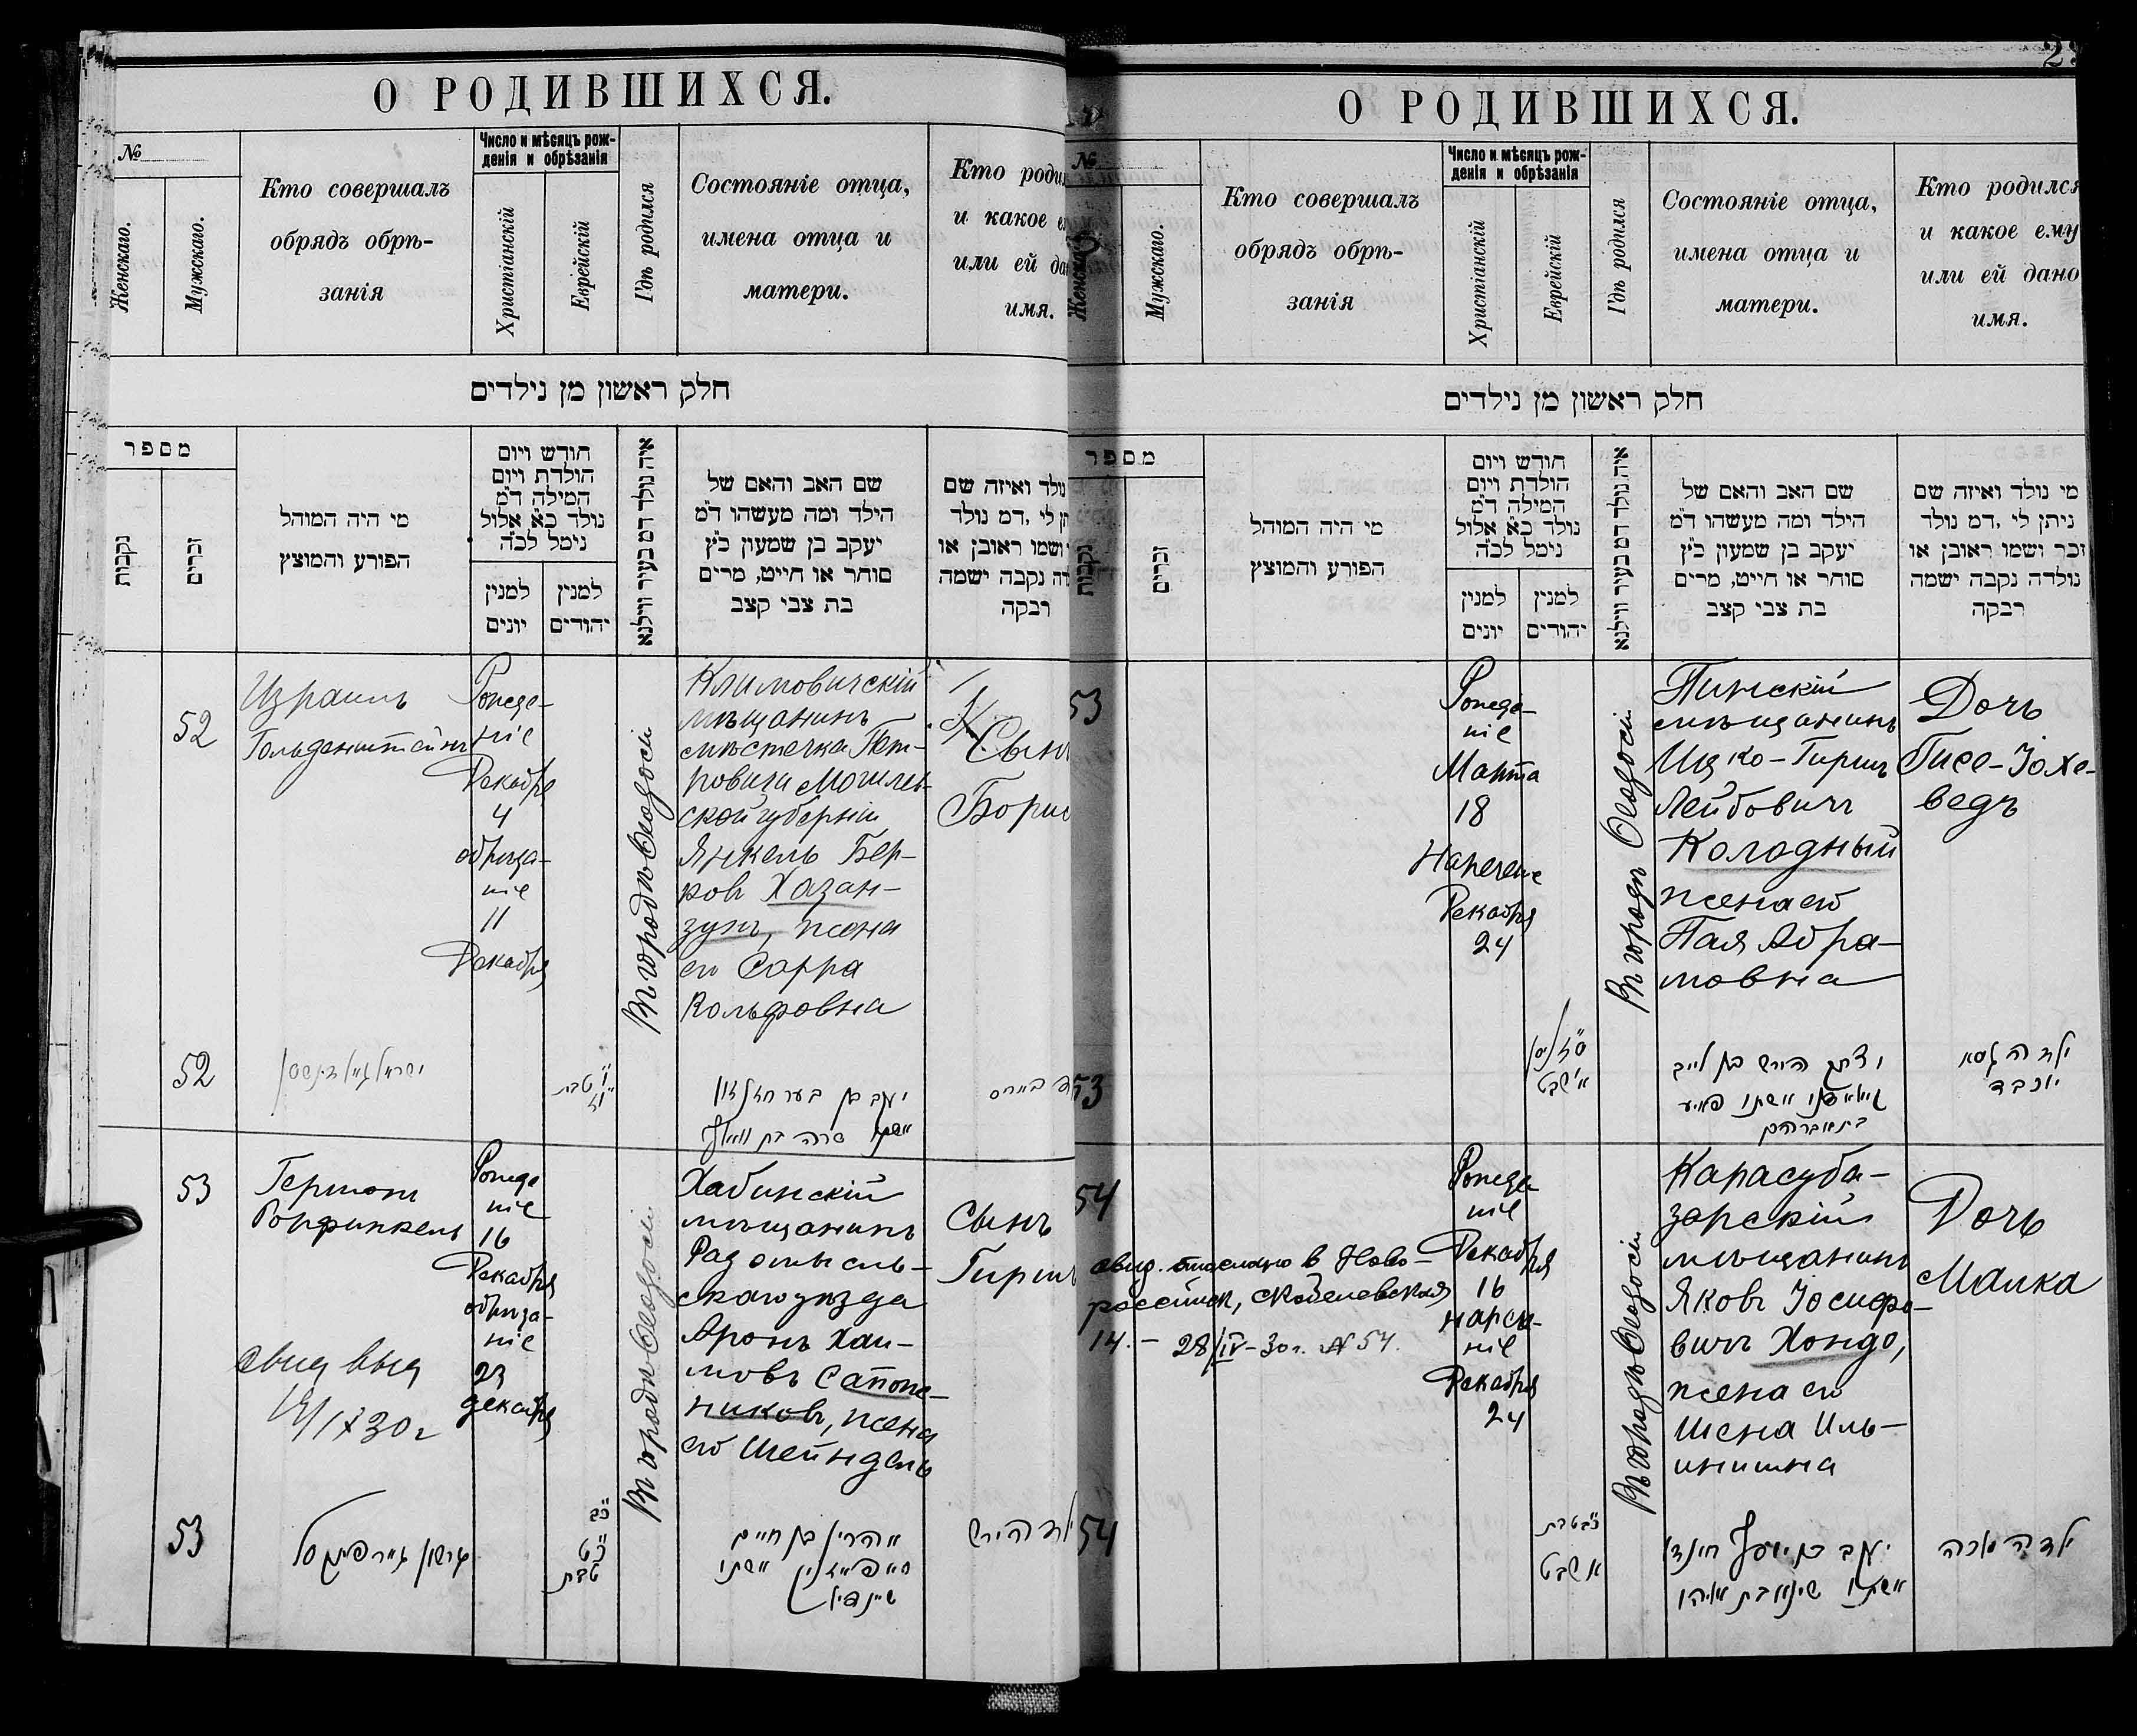 О РОДИВШИХСЯ.
№
Женскаго.
Мужскаго.
Кто совершалъ
обрядъ обрѣ-
занія
Число и мѣсяцъ рож-
денія и обрѣзанія
Христіанскій
Еврейскій
Гдѣ родился
Состояніе отца,
имена отца и
матери.
Кто
и какое
или ей
имя.
חלק ראשון מן נילדים
מספר
נקבות
זכרים
מי היה המוהל
הפורע והמוצץ
חודש ויום
הולדת ויום
המילה ד״מ
נולד כ״א אלול
נימל לכ״ה
למנין
יונים
למנין
יהודים
איה נולד דמ בעיר ווילנא
שם האב והאם של
הילד ומה מעשהו ד״מ
יעקב בן שמעון כ״ץ
סוחר או חייט, מרים
בת צבי קצב
נולד ואיזה שם
לי ,דמ נולד
ושמו ראובן או
נקבה ישמה
רבקה
52
Израиль
Гольденштейнъ
Рожде-
ніе
Декабря
4
обрѣза-
ніе
11
Декабря
Въ городѣ Ѳеодосіи
Климовичскій
мѣщанинъ
мѣстечка Пет-
ровичи Могилев-
ской губерніи
Янкель Бер-
ковъ Хазан-
зунъ, жена
его Сарра
Вольфовна
Сынъ
Борис
52
טבת
יעקב בן בער חזנזון
אשתו שרה בת וואלף
53
Гершонъ
Гонфинкель
Рожде
ніе
16
Декабря
обрѣза-
ніе
23
декабря
свид выд
Въ городѣ Ѳеодосіи
Хабинскій
мѣщанинъ
Радомысль-
скаго уѣзда
Аронъ Хаи-
мовъ Сапож-
никовъ, жена
его Шейндель
Сынъ
Гиршъ
53
כ״ב
כ״ט
טבת
אהרין בן חיים
אשתו
שיינדיל
ילד הירש
О РОДИВШИХСЯ.
№
Мужскаго.
Кто совершалъ
обрядъ обрѣ-
занія
Число и мѣсяцъ рож-
денія и обрѣзанія
Христіанскій
Еврейскій
Гдѣ родился
Состояніе отца,
имена отца и
матери.
Кто родился
и какое ему
или ей дано
имя.
חלק ראשון מן נילדים
מספר
נקבות
זכרים
מי היה המוהל
הפורע והמוצץ
חודש ויום
הולדת ויום
המילה ד״מ
נולד כ״א אלול
נימל לכ״ה
למנין
יונים
למנין
יהודים
איה נולד דמ בעיר ווילנא
שם האב והאם של
הילד ומה מעשהו ד״מ
יעקב בן שמעון כ״ץ
סוחר או חייט, מרים
בת צבי קצב
מי נולד ואיזה שם
ניתן לי ,דמ נולד
זכר ושמו ראובן או
נולדה נקבה ישמה
רבקה
53
Рожде-
ніе
Марта
18
Наречение
Декабря
24
Въ городѣ Ѳеодосіи
Пинскій
мѣщанинъ
Ицко-Гиршъ
Лейбовичъ
Колодный
жена его
Пая Абра-
мовна
Дочь
Гися-Іохе-
ведъ
53
א׳ שבט
יצחק הירש בן לייב
אשתו פאיע
בת אברהם
ילדה גיסא
יוכבד
54
свид. выслано в Ново-
российск, Скобелевская
14. – 28/IV–30г. № 54.
Рожде
ніе
Декабря
16
нарече-
ніе
Декабря
24
Въ городѣ Ѳеодосіи
Карасуба-
зарскій
мѣщанинъ
Яковъ Іосифо-
вичъ Хондо,
жена его
Шена Иль-
инишна
Дочь
Малка
54
כ״ב טבת
א שבט
יעקב בן יוסף חונדא
אשתו שינא בת אליהו
ילדה מלכה